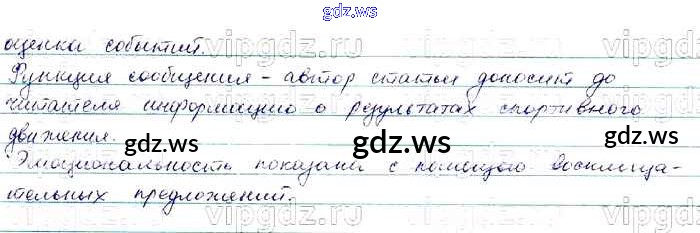 gdz.ws
оценка событий.
Функция сообщения - автор статьи доносит до
читателя информацию о результатах спортивного
движения.
gdz.ws gdz.ws gdz.ws
Эмоциональность показана с помощью восклица-
тельных предложений.
vipgdz.ru vipgdz.ru vipgdz.ru